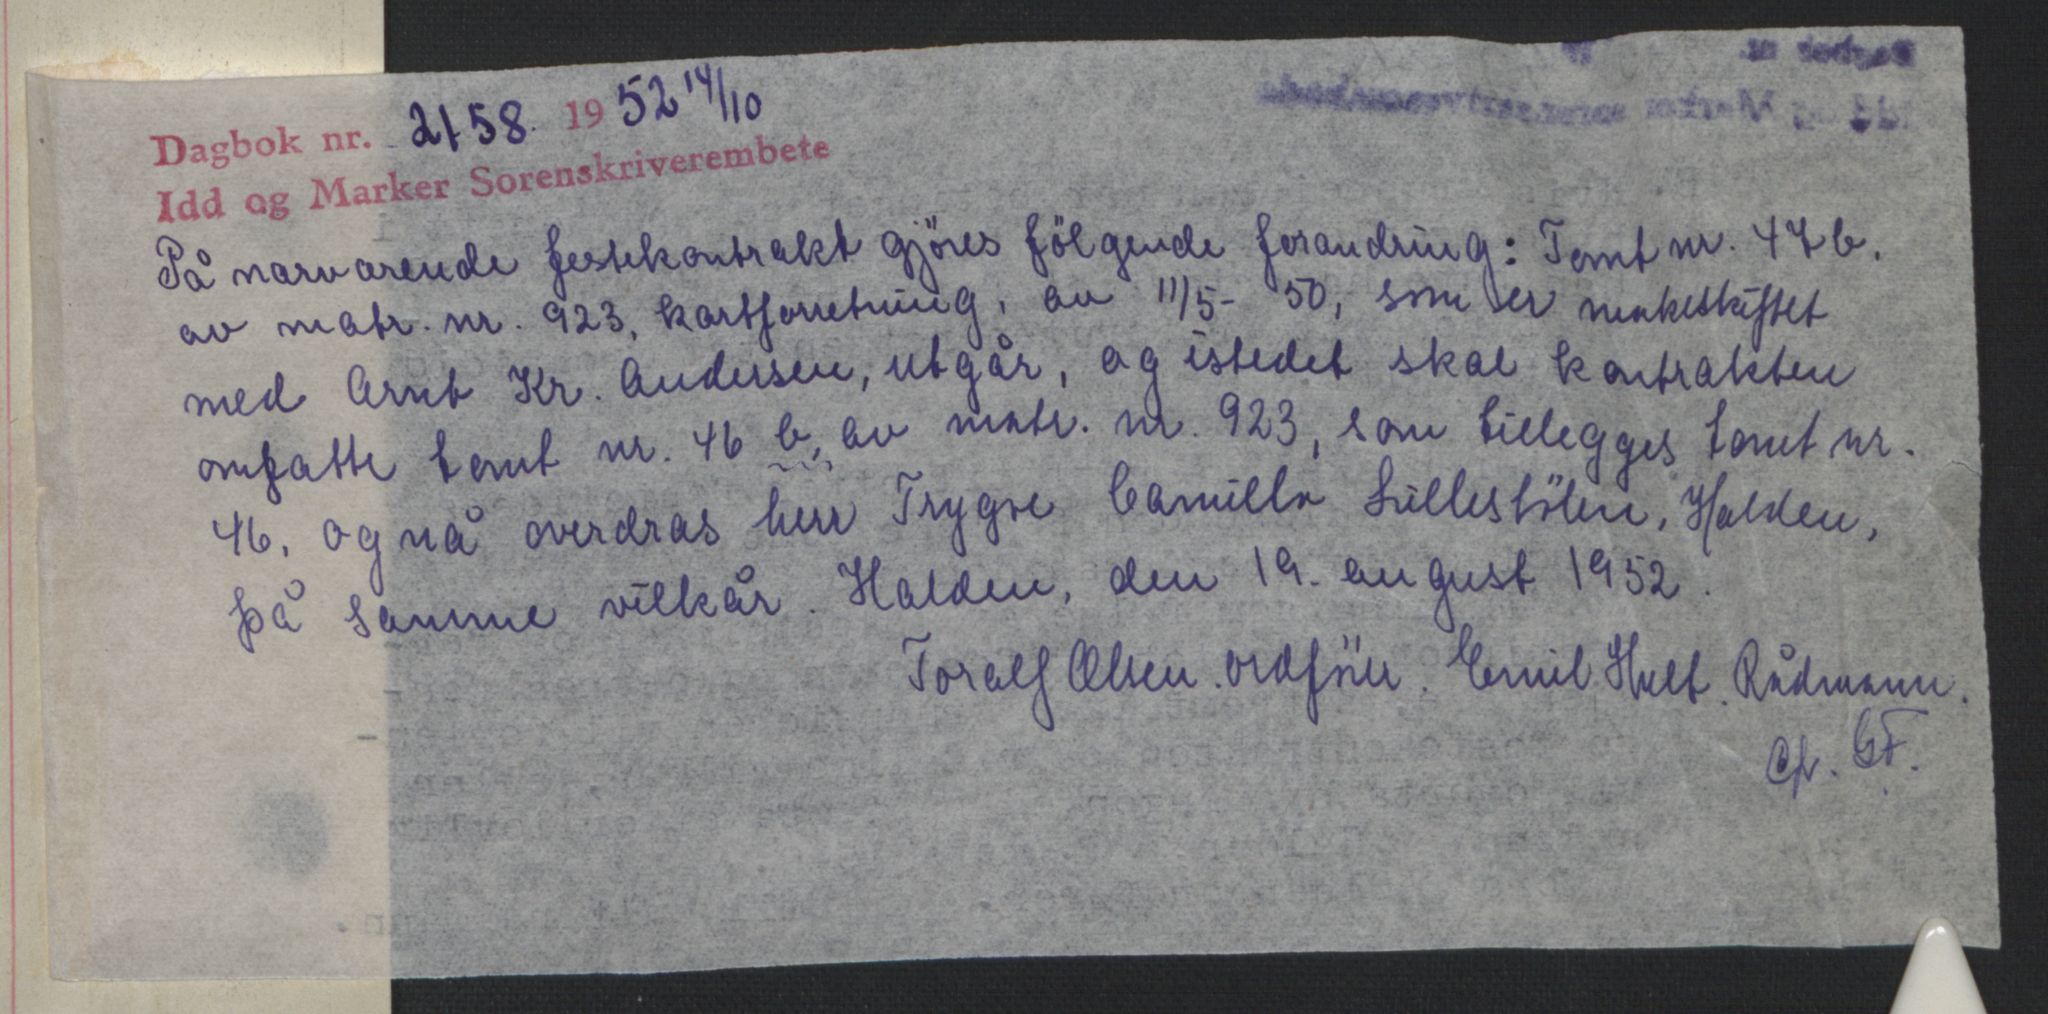 Dagbok nr. 2158. 19 52 14/10
Idd og Marker Sorenskriverembete
På nærværende festekontrakt gjöres fölgende forandring: Tomt nr. 47 b.
av matr. nr. 923, kartforretning, av 11/5- 50, som er makeskiftet
med Arnt Kr. Andersen, utgår, og istedet skal kontrakten
omfatte tomt nr. 46 b, av matr. nr. 923, som tillegges tomt nr.
46. og nå overdras herr Trygve Camillo Lillestölen, Halden,
på samme vilkår. Halden, den 19. august 1952.
Toralf Olsen. ordförer. Emil Hult. Rådmann.
GF.